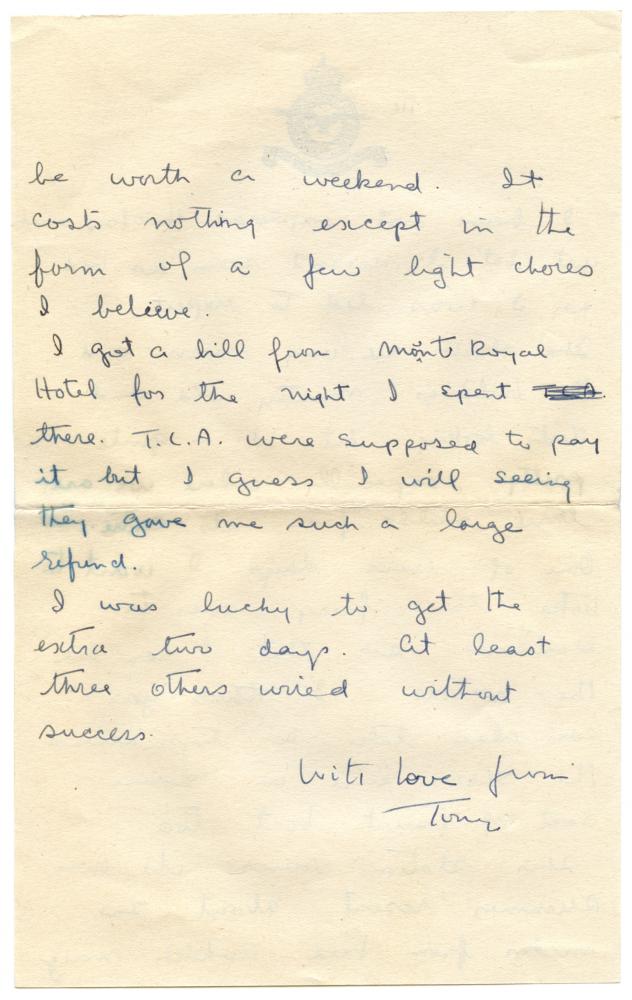 be worth a weekend. It
costs nothing except in the
form of a few light chores
I believe.
I got a bill from Mont Royal
Hotel for the night I spent T.C.A.
there. T.C.A. were supposed to pay
it but I guess I will seeing
they gave me such a large
refund.
I was lucky to get the
extra two days. At least
three others wried without
success.
With love from
Tony